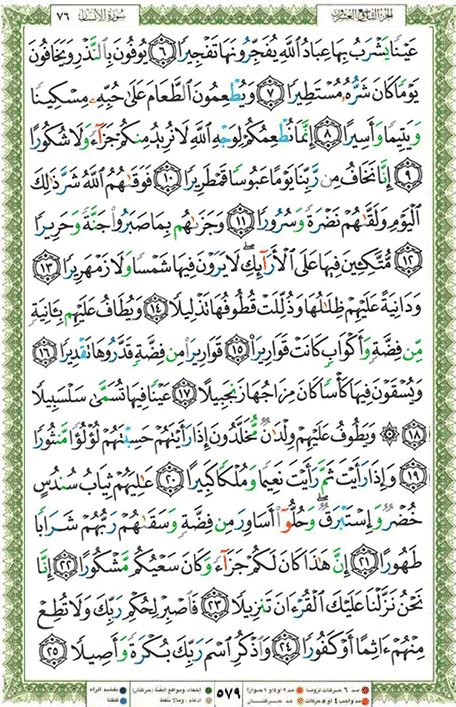 الجزء التاسع والعشرون سورة الإنسان ٧٦
عَيْنًا يَشْرَبُ بِهَا عِبَادُ ٱللَّهِ يُفَجِّرُونَهَا تَفْجِيرًا ٦ يُوفُونَ بِٱلنَّذْرِ وَيَخَافُونَ
يَوْمًا كَانَ شَرُّهُۥ مُسْتَطِيرًا ٧ وَيُطْعِمُونَ ٱلطَّعَامَ عَلَىٰ حُبِّهِۦ مِسْكِينًا
وَيَتِيمًا وَأَسِيرًا ٨ إِنَّمَا نُطْعِمُكُمْ لِوَجْهِ ٱللَّهِ لَا نُرِيدُ مِنكُمْ جَزَآءً وَلَا شُكُورًا
٩ إِنَّا نَخَافُ مِن رَّبِّنَا يَوْمًا عَبُوسًا قَمْطَرِيرًا ١٠ فَوَقَىٰهُمُ ٱللَّهُ شَرَّ ذَٰلِكَ
ٱلْيَوْمِ وَلَقَّىٰهُمْ نَضْرَةً وَسُرُورًا ١١ وَجَزَىٰهُم بِمَا صَبَرُوا۟ جَنَّةً وَحَرِيرًا
١٢ مُّتَّكِـِٔينَ فِيهَا عَلَى ٱلْأَرَآئِكِ ۖ لَا يَرَوْنَ فِيهَا شَمْسًا وَلَا زَمْهَرِيرًا ١٣
وَدَانِيَةً عَلَيْهِمْ ظِلَٰلُهَا وَذُلِّلَتْ قُطُوفُهَا تَذْلِيلًا ١٤ وَيُطَافُ عَلَيْهِم بِـَٔانِيَةٍ
مِّن فِضَّةٍ وَأَكْوَابٍ كَانَتْ قَوَارِيرَا۠ ١٥ قَوَارِيرَا۟ مِن فِضَّةٍ قَدَّرُوهَا تَقْدِيرًا ١٦
وَيُسْقَوْنَ فِيهَا كَأْسًا كَانَ مِزَاجُهَا زَنجَبِيلًا ١٧ عَيْنًا فِيهَا تُسَمَّىٰ سَلْسَبِيلًا
١٨ ۞ وَيَطُوفُ عَلَيْهِمْ وِلْدَٰنٌ مُّخَلَّدُونَ إِذَا رَأَيْتَهُمْ حَسِبْتَهُمْ لُؤْلُؤًا مَّنثُورًا
١٩ وَإِذَا رَأَيْتَ ثَمَّ رَأَيْتَ نَعِيمًا وَمُلْكًا كَبِيرًا ٢٠ عَٰلِيَهُمْ ثِيَابُ سُندُسٍ
خُضْرٌ وَإِسْتَبْرَقٌ ۖ وَحُلُّوٓا۟ أَسَاوِرَ مِن فِضَّةٍ وَسَقَىٰهُمْ رَبُّهُمْ شَرَابًا
طَهُورًا ٢١ إِنَّ هَٰذَا كَانَ لَكُمْ جَزَآءً وَكَانَ سَعْيُكُم مَّشْكُورًا ٢٢ إِنَّا
نَحْنُ نَزَّلْنَا عَلَيْكَ ٱلْقُرْءَانَ تَنزِيلًا ٢٣ فَٱصْبِرْ لِحُكْمِ رَبِّكَ وَلَا تُطِعْ
مِنْهُمْ ءَاثِمًا أَوْ كَفُورًا ٢٤ وَٱذْكُرِ ٱسْمَ رَبِّكَ بُكْرَةً وَأَصِيلًا ٢٥
٥٧٩